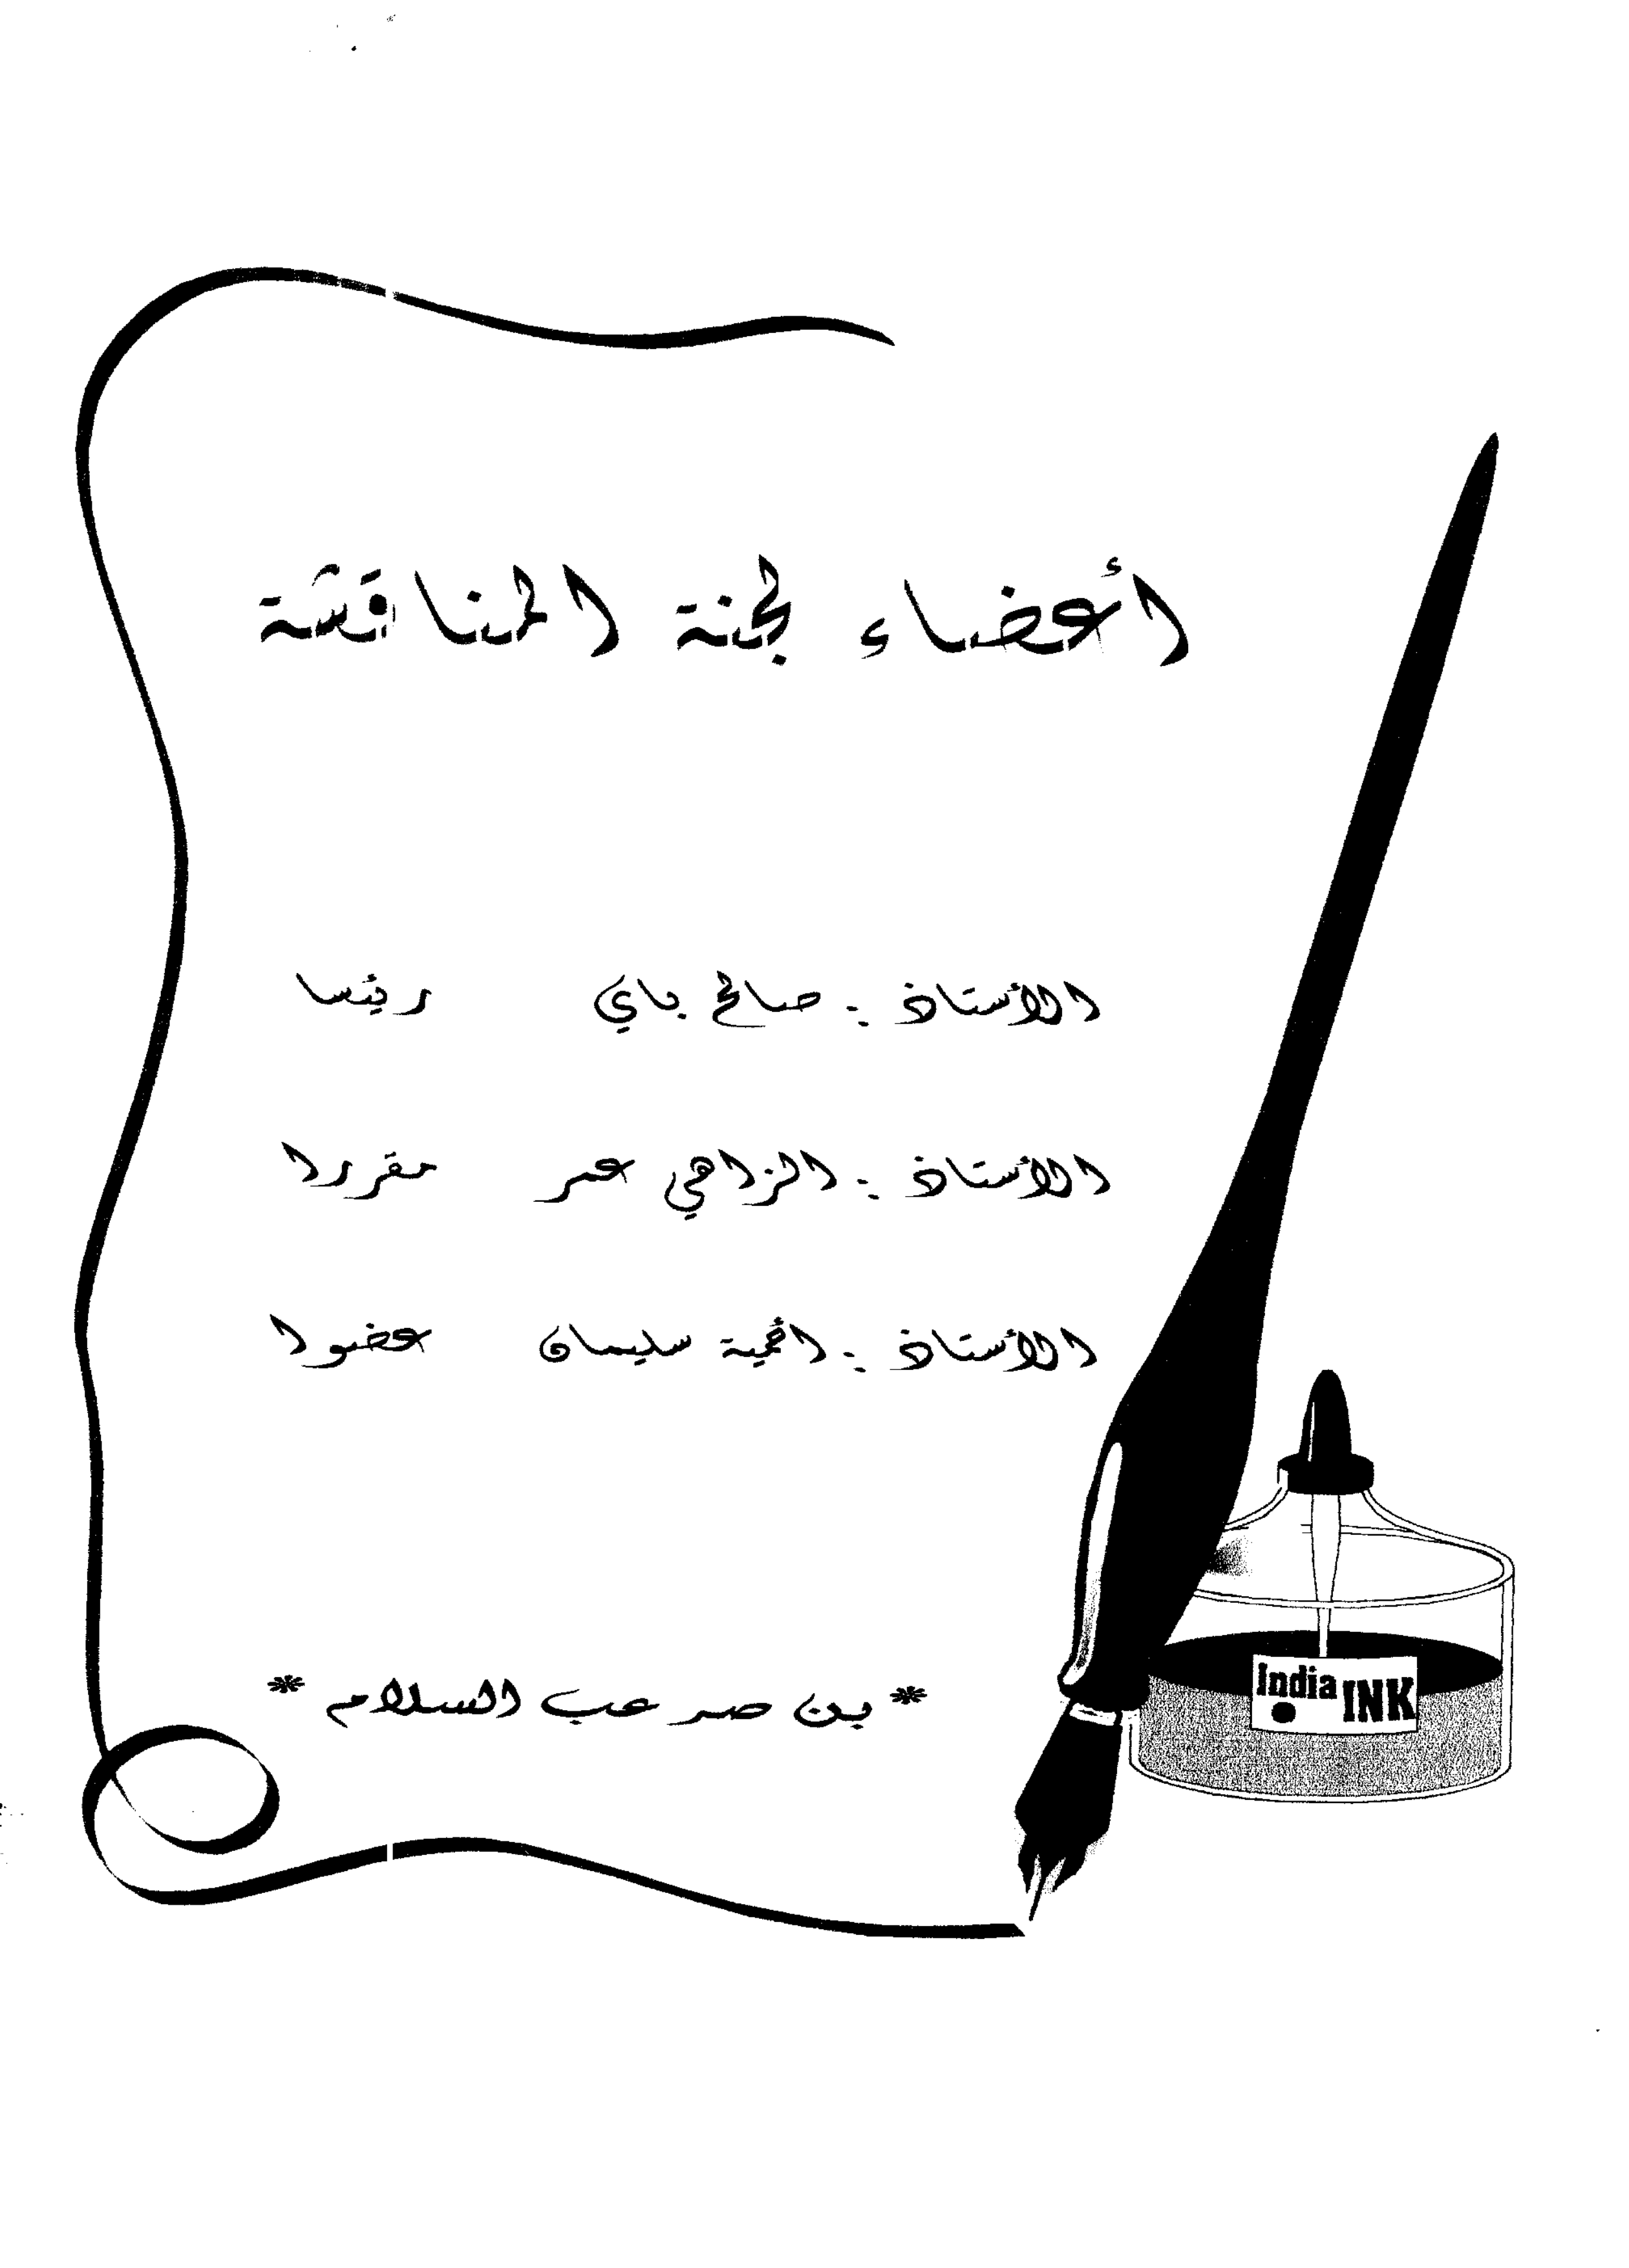 أعضاء لجنة المناقشة
الأستاذ : صالح باي رئيسا
الأستاذ : الزاهي عمر مقررا
الأستاذ : سليمان عضوا
* بن صر عب السلام *
India INK